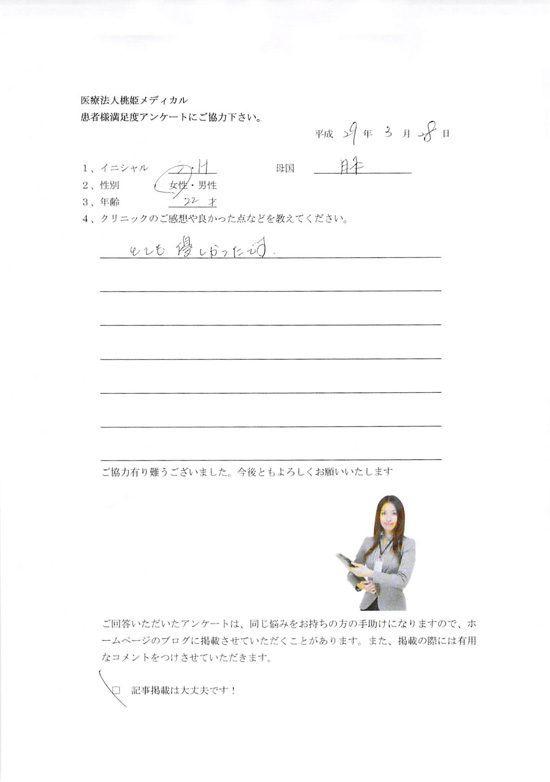 医療法人桃姫メディカル
患者様満足度アンケートにご協力下さい。
平成 29 年 3 月 28 日
1、イニシャル ・H 母国 日本
2、性別 女性・男性
3、年齢 22 才
4、クリニックのご感想や良かった点などを教えてください。
とても優しかったです.
ご協力有り難うございました。今後ともよろしくお願いいたします
ご回答いただいたアンケートは、同じ悩みをお持ちの方の手助けになりますので、ホ
ームページのブログに掲載させていただくことがあります。また、掲載の際には有用
なコメントをつけさせていただきます。
□ 記事掲載は大丈夫です！